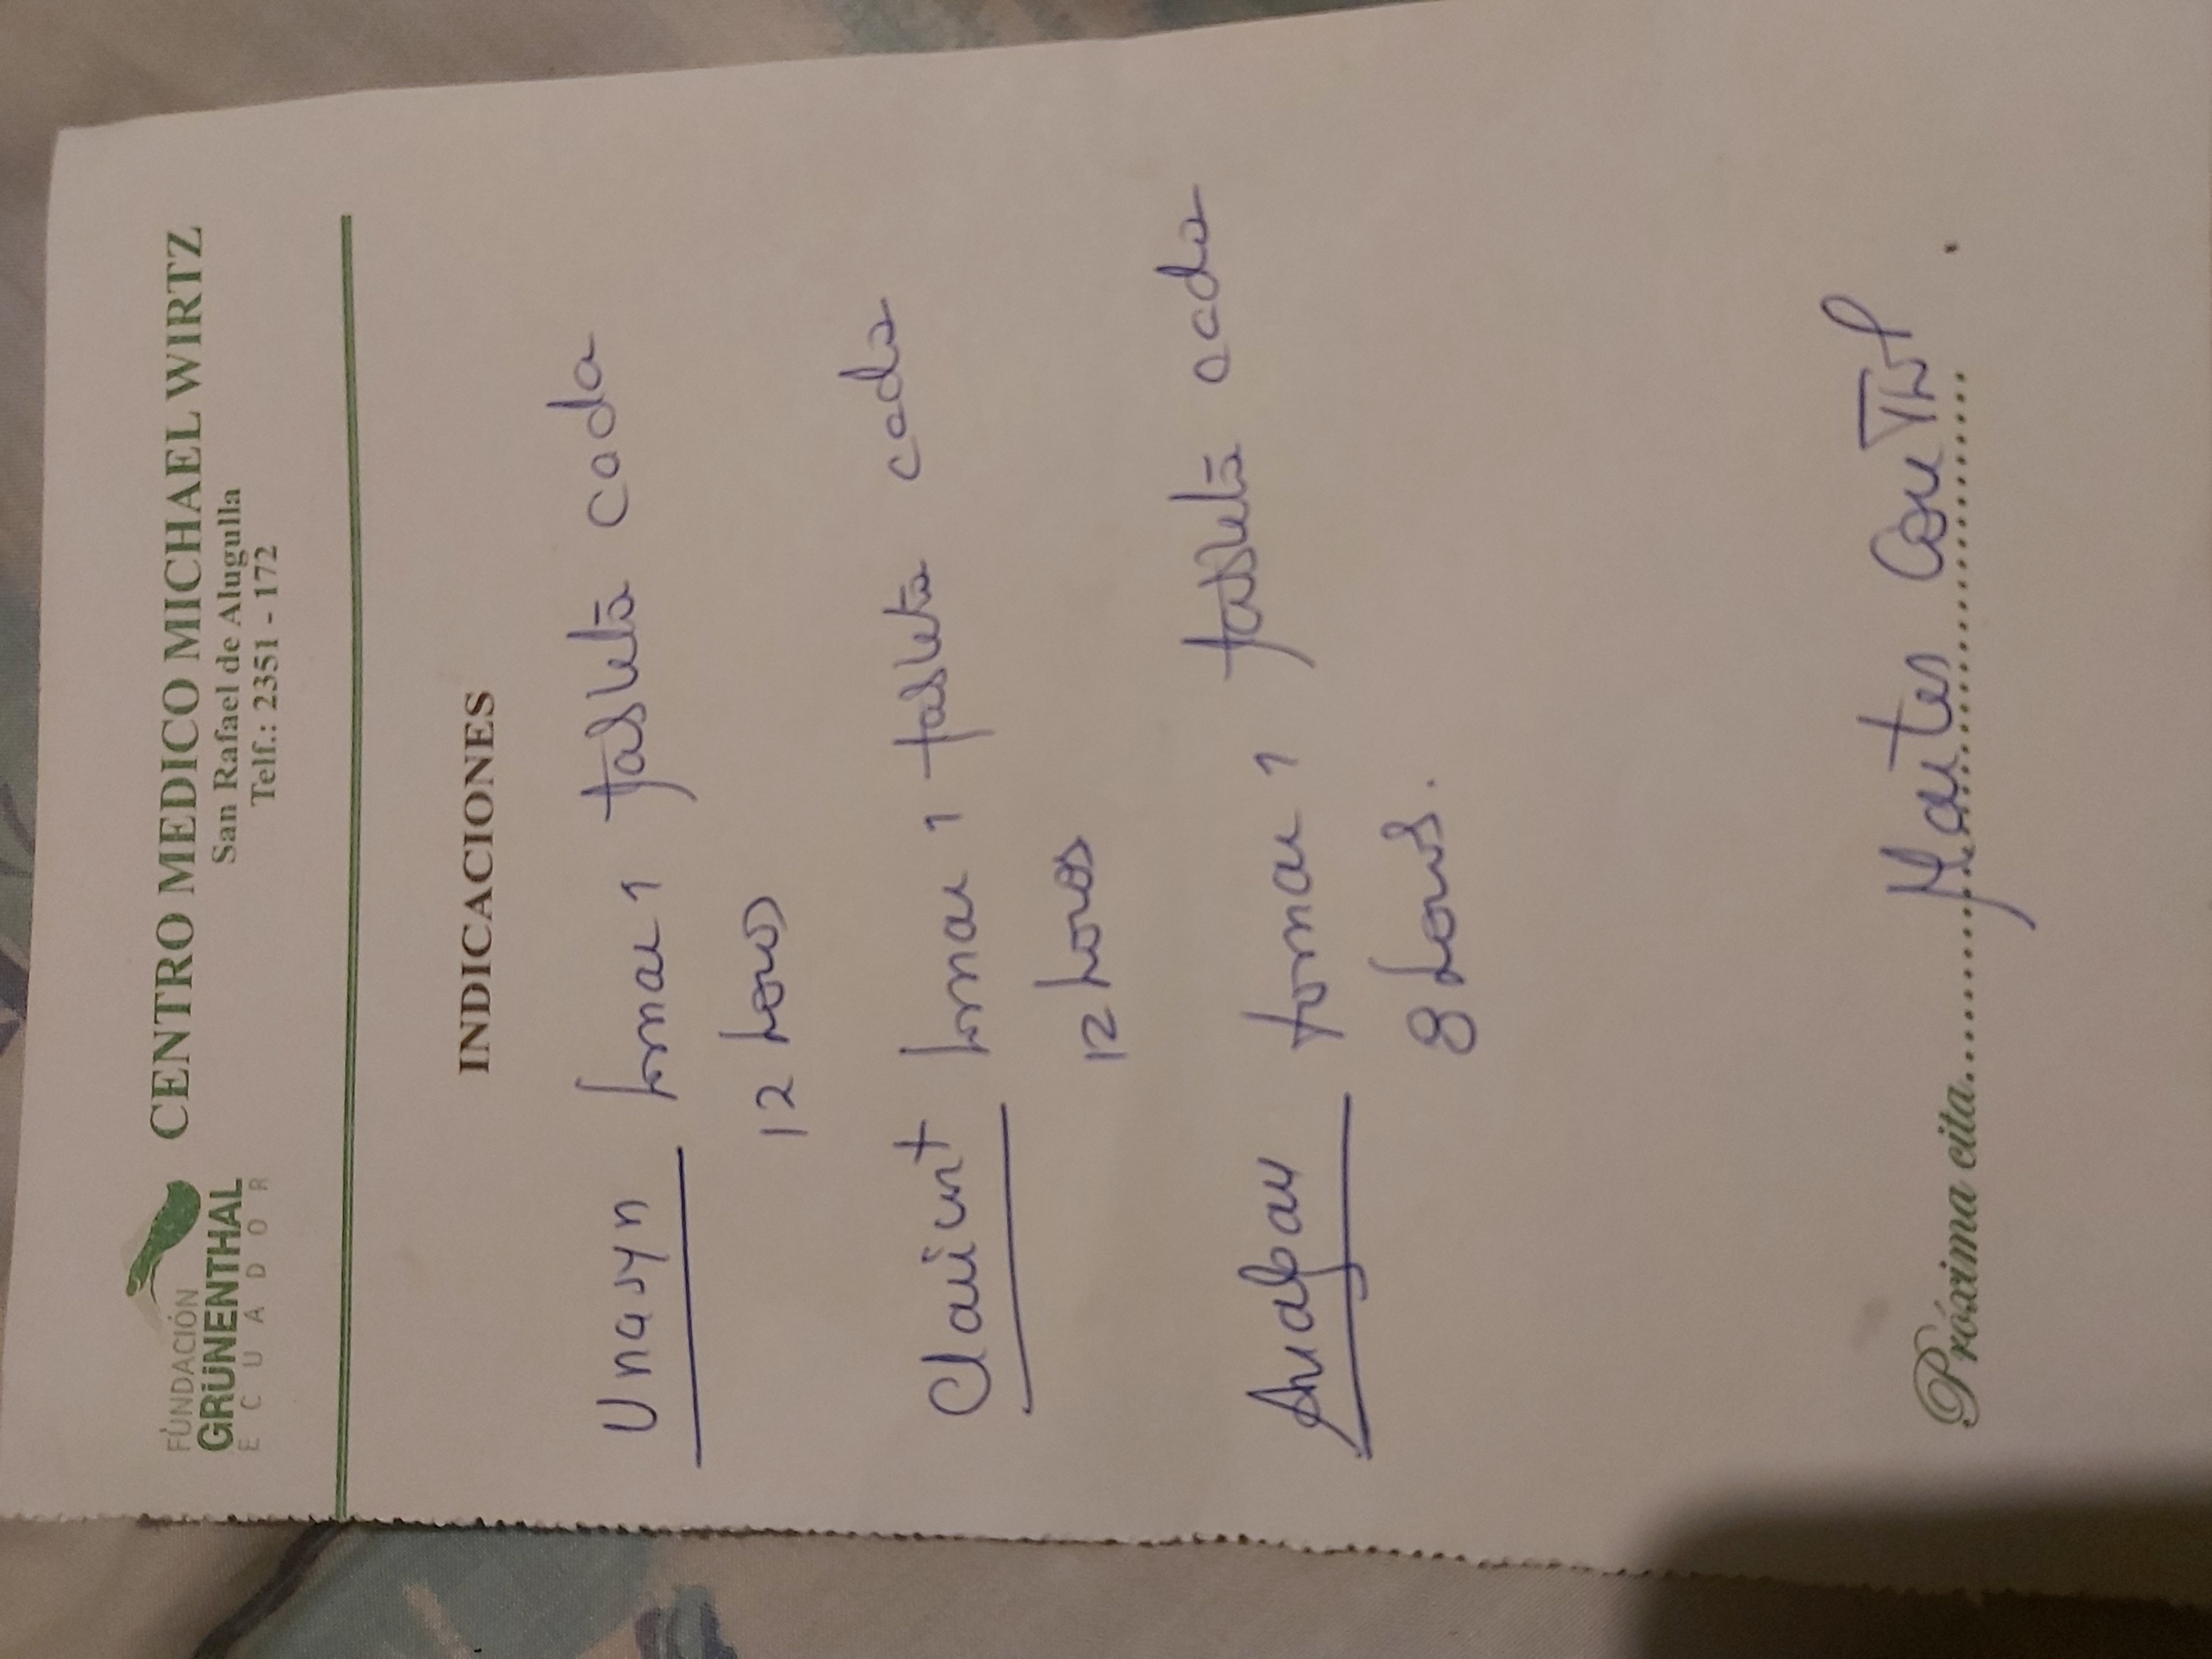 FUNDACIÓN
GRÜNENTHAL
ECUADOR
CENTRO MEDICO MICHAEL WIRTZ
San Rafael de Alugulla
Telf.: 2351 - 172
INDICACIONES
Unasyn tomar 1 tableta cada
12 horas
tomar 1 tableta cada
12 horas
Analgan tomar 1 tableta cada
8 horas.
Próxima cita.......... Martes Control.